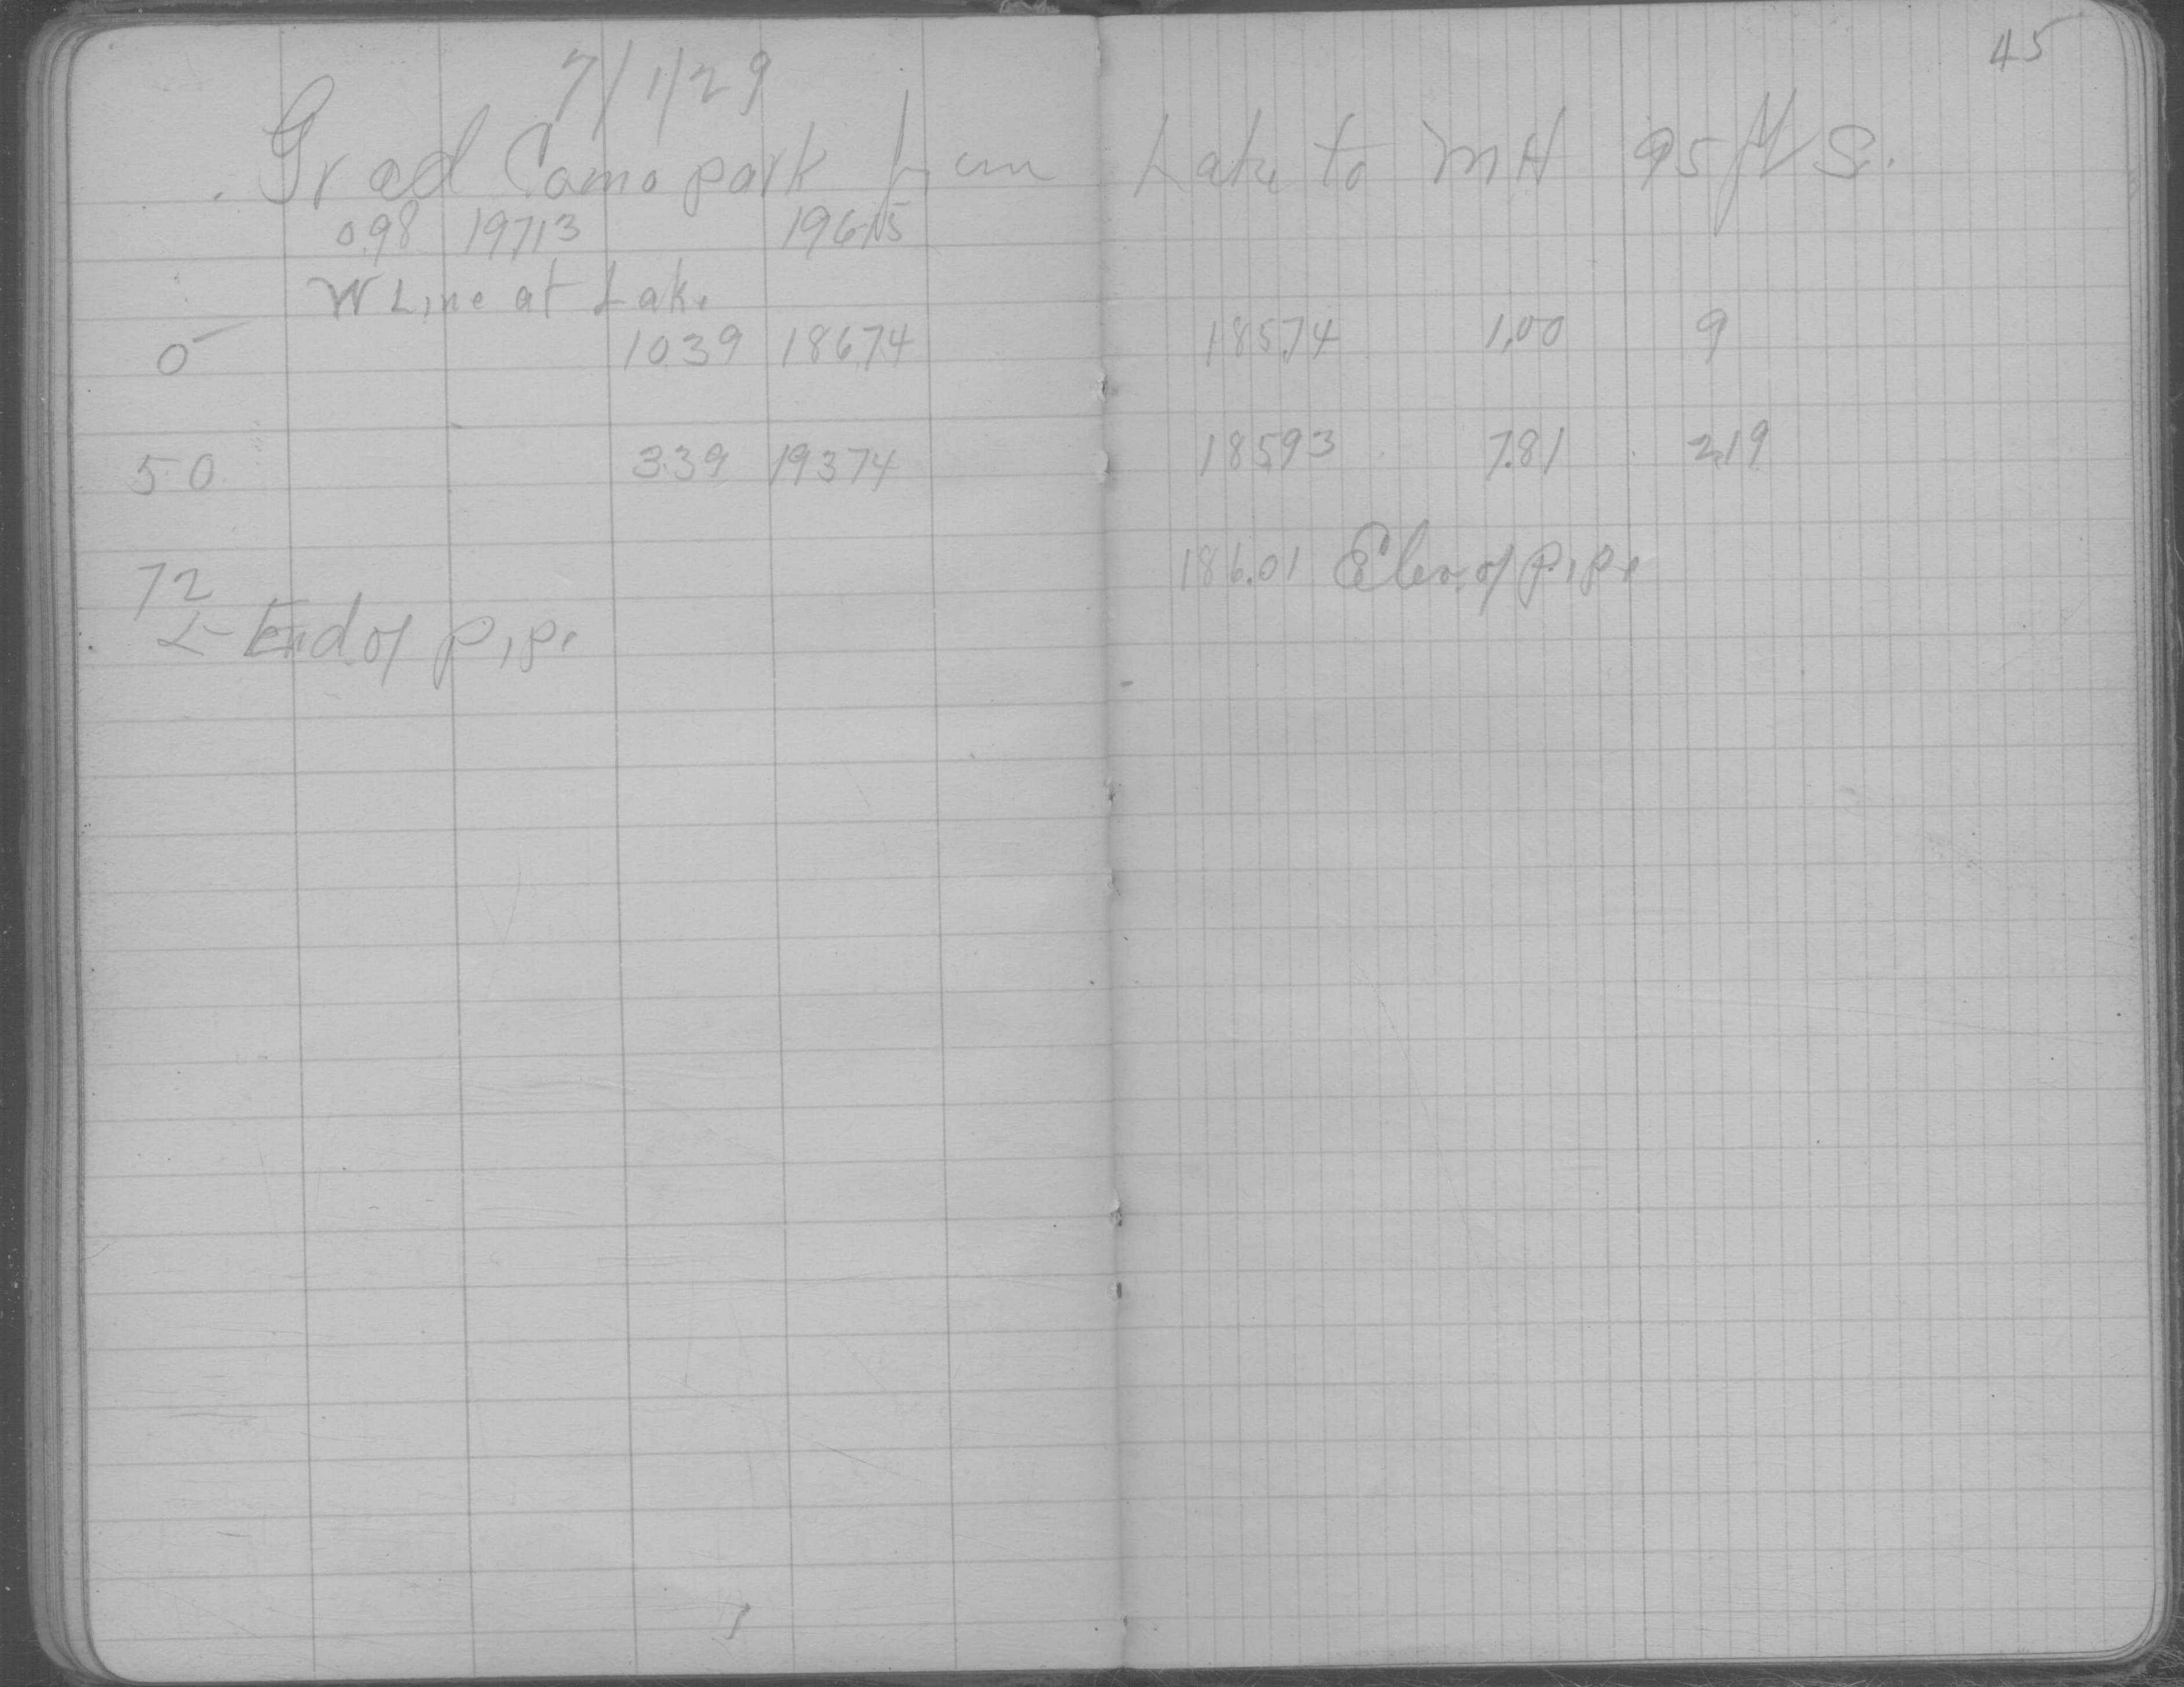 45
7/1/29
Grad Como park from Lake to MH 95 ft S.
0.98 197.13 196.15
W Line at Lake
0 10.39 186.74 185.74 1.00 9
50 3.39 193.74 185.93 7.81 2.19
72 186.01 Elev of Pipe
End of Pipe